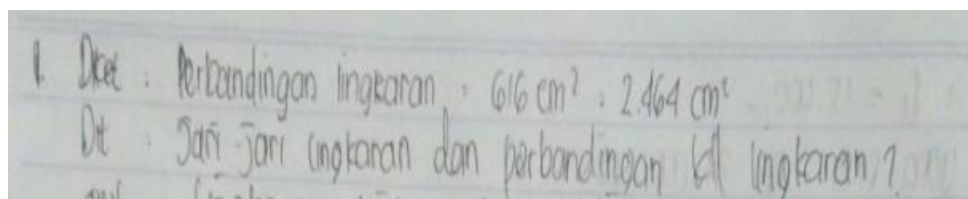 1. Diket : Perbandingan lingkaran = 616 cm² : 2.464 cm²
Dit : Jari-jari lingkaran dan perbandingan kll lingkaran?